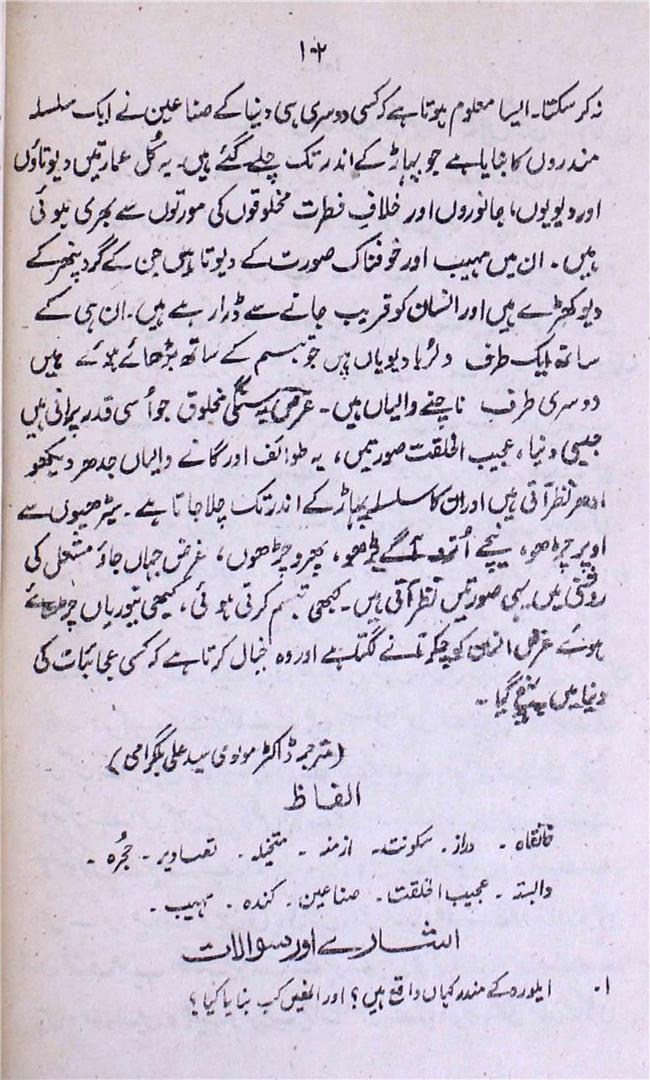 ۱۰۲
نہ کر سکتا۔ ایسا معلوم ہوتا ہے کہ کسی دوسری ہی دنیا کے صناعین نے ایک سلسلہ
مندروں کا بنایا ہے جو پہاڑ کے اندر تک چلے گئے ہیں۔ یہ کُل عمارتیں دیوتاؤں
اور دیویوں، جانوروں اور خلافِ فطرت مخلوقوں کی مورتوں سے بھری ہوئی
ہیں۔ ان میں مہیب اور خوفناک صورت کے دیوتا ہیں جن کے گرد پتھر کے
دیو کھڑے ہیں اور انسان کو قریب جانے سے ڈرا رہے ہیں۔ ان ہی کے
ساتھ ایک طرف دلربا دیویاں ہیں جو تبسم کے ساتھ بڑھائے ہوئے ہیں
دوسری طرف ناچنے والیاں ہیں۔ غرض یہ سنگی مخلوق جو اُسی قدر پرانی ہیں
جیسی دنیا، عجیب الخلقت صورتیں، یہ طوائف اور گانے والیاں جدھر دیکھو
ادھر نظر آتی ہیں اور ان کا سلسلہ پہاڑ کے اندر تک چلا جاتا ہے۔ سیڑھیوں سے
اوپر چڑھو، نیچے اُترو آگے بڑھو، پھرو چڑھوں، غرض جہاں جاؤ مشعل کی
روشنی میں یہی صورتیں نظر آتی ہیں۔ کبھی تبسم کرتی ہوئی، کبھی تیوریاں چڑھائے
ہوئے غرض انسان کو چکر آنے لگتا ہے اور وہ خیال کرتا ہے کہ کسی عجائبات کی
دنیا میں پہنچ گیا۔
(مترجمہ ڈاکٹر مولوی سید علی بلگرامی)
الفاظ
خانقاہ۔ دراز۔ سکونت۔ ازمنہ۔ متخیلہ۔ تصاویر۔ حجرہ۔
وابستہ۔ عجیب الخلقت۔ صناعین۔ کندہ۔ مہیب۔
اشارے اور سوالات
۱۔ ایلورہ کے مندر کہاں واقع ہیں؟ اور انھیں کب بنایا گیا؟